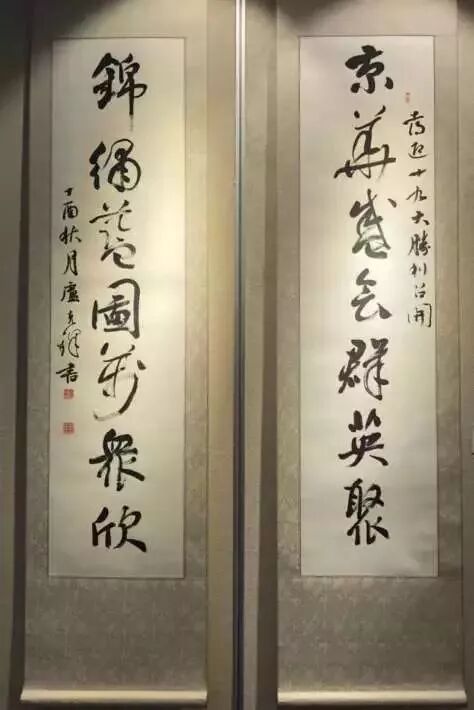 京華盛会群英聚
喜迎十九大勝利召開
錦繡藍圖萬衆欣
丁酉秋月盧書